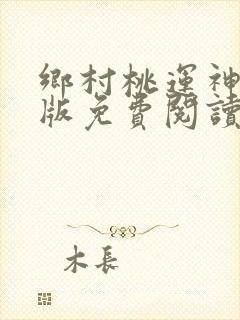 鄉村桃運神
版免費閱讀
木長